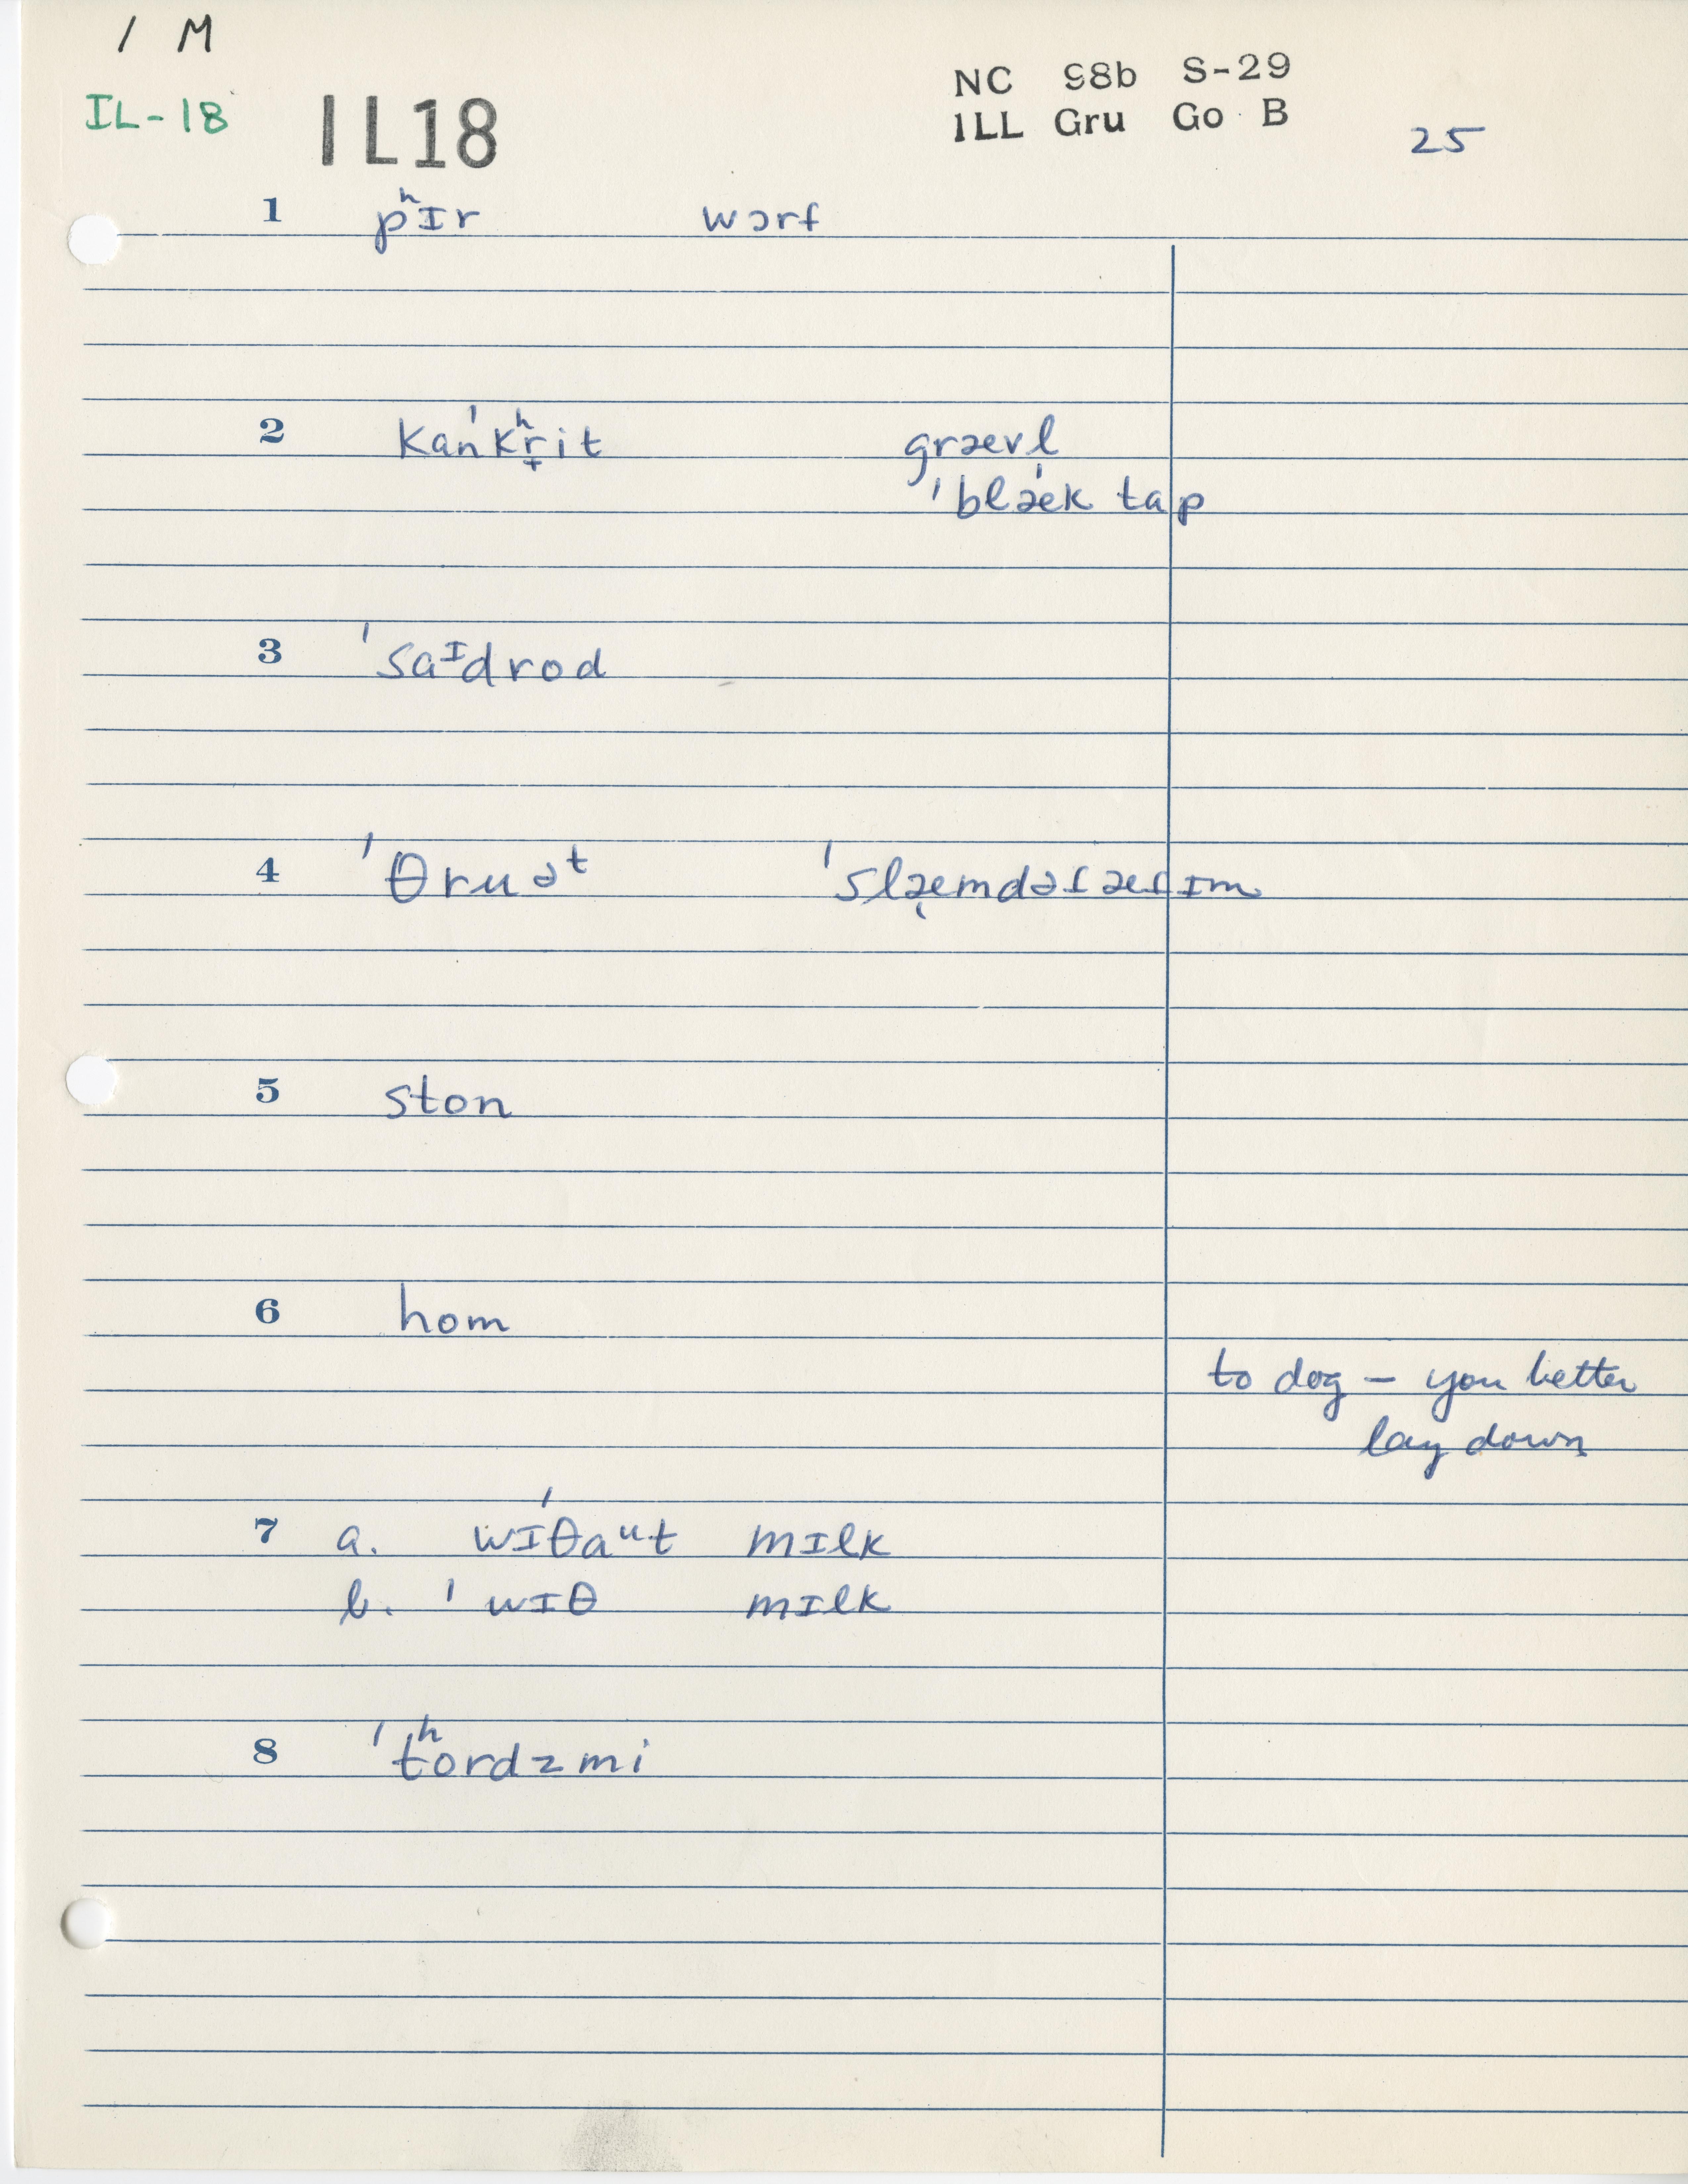 / M
IL-18 IL18 NC 98b S-29
ILL Gru Go B 25
1 pʰɪr wɔrf
2 kanˈkʰr̟it grævl
ˈblækˈtap
3 ˈsaᶦdrod
4 ˈθruəᵗ ˈslæ̜mdəfæfɪm
5 ston
6 hom
to dog – you better
lay down
7 a. wɪˈθaᵘt mɪlk
b. ˈwɪθ mɪlk
8 ˈtʰordzmi